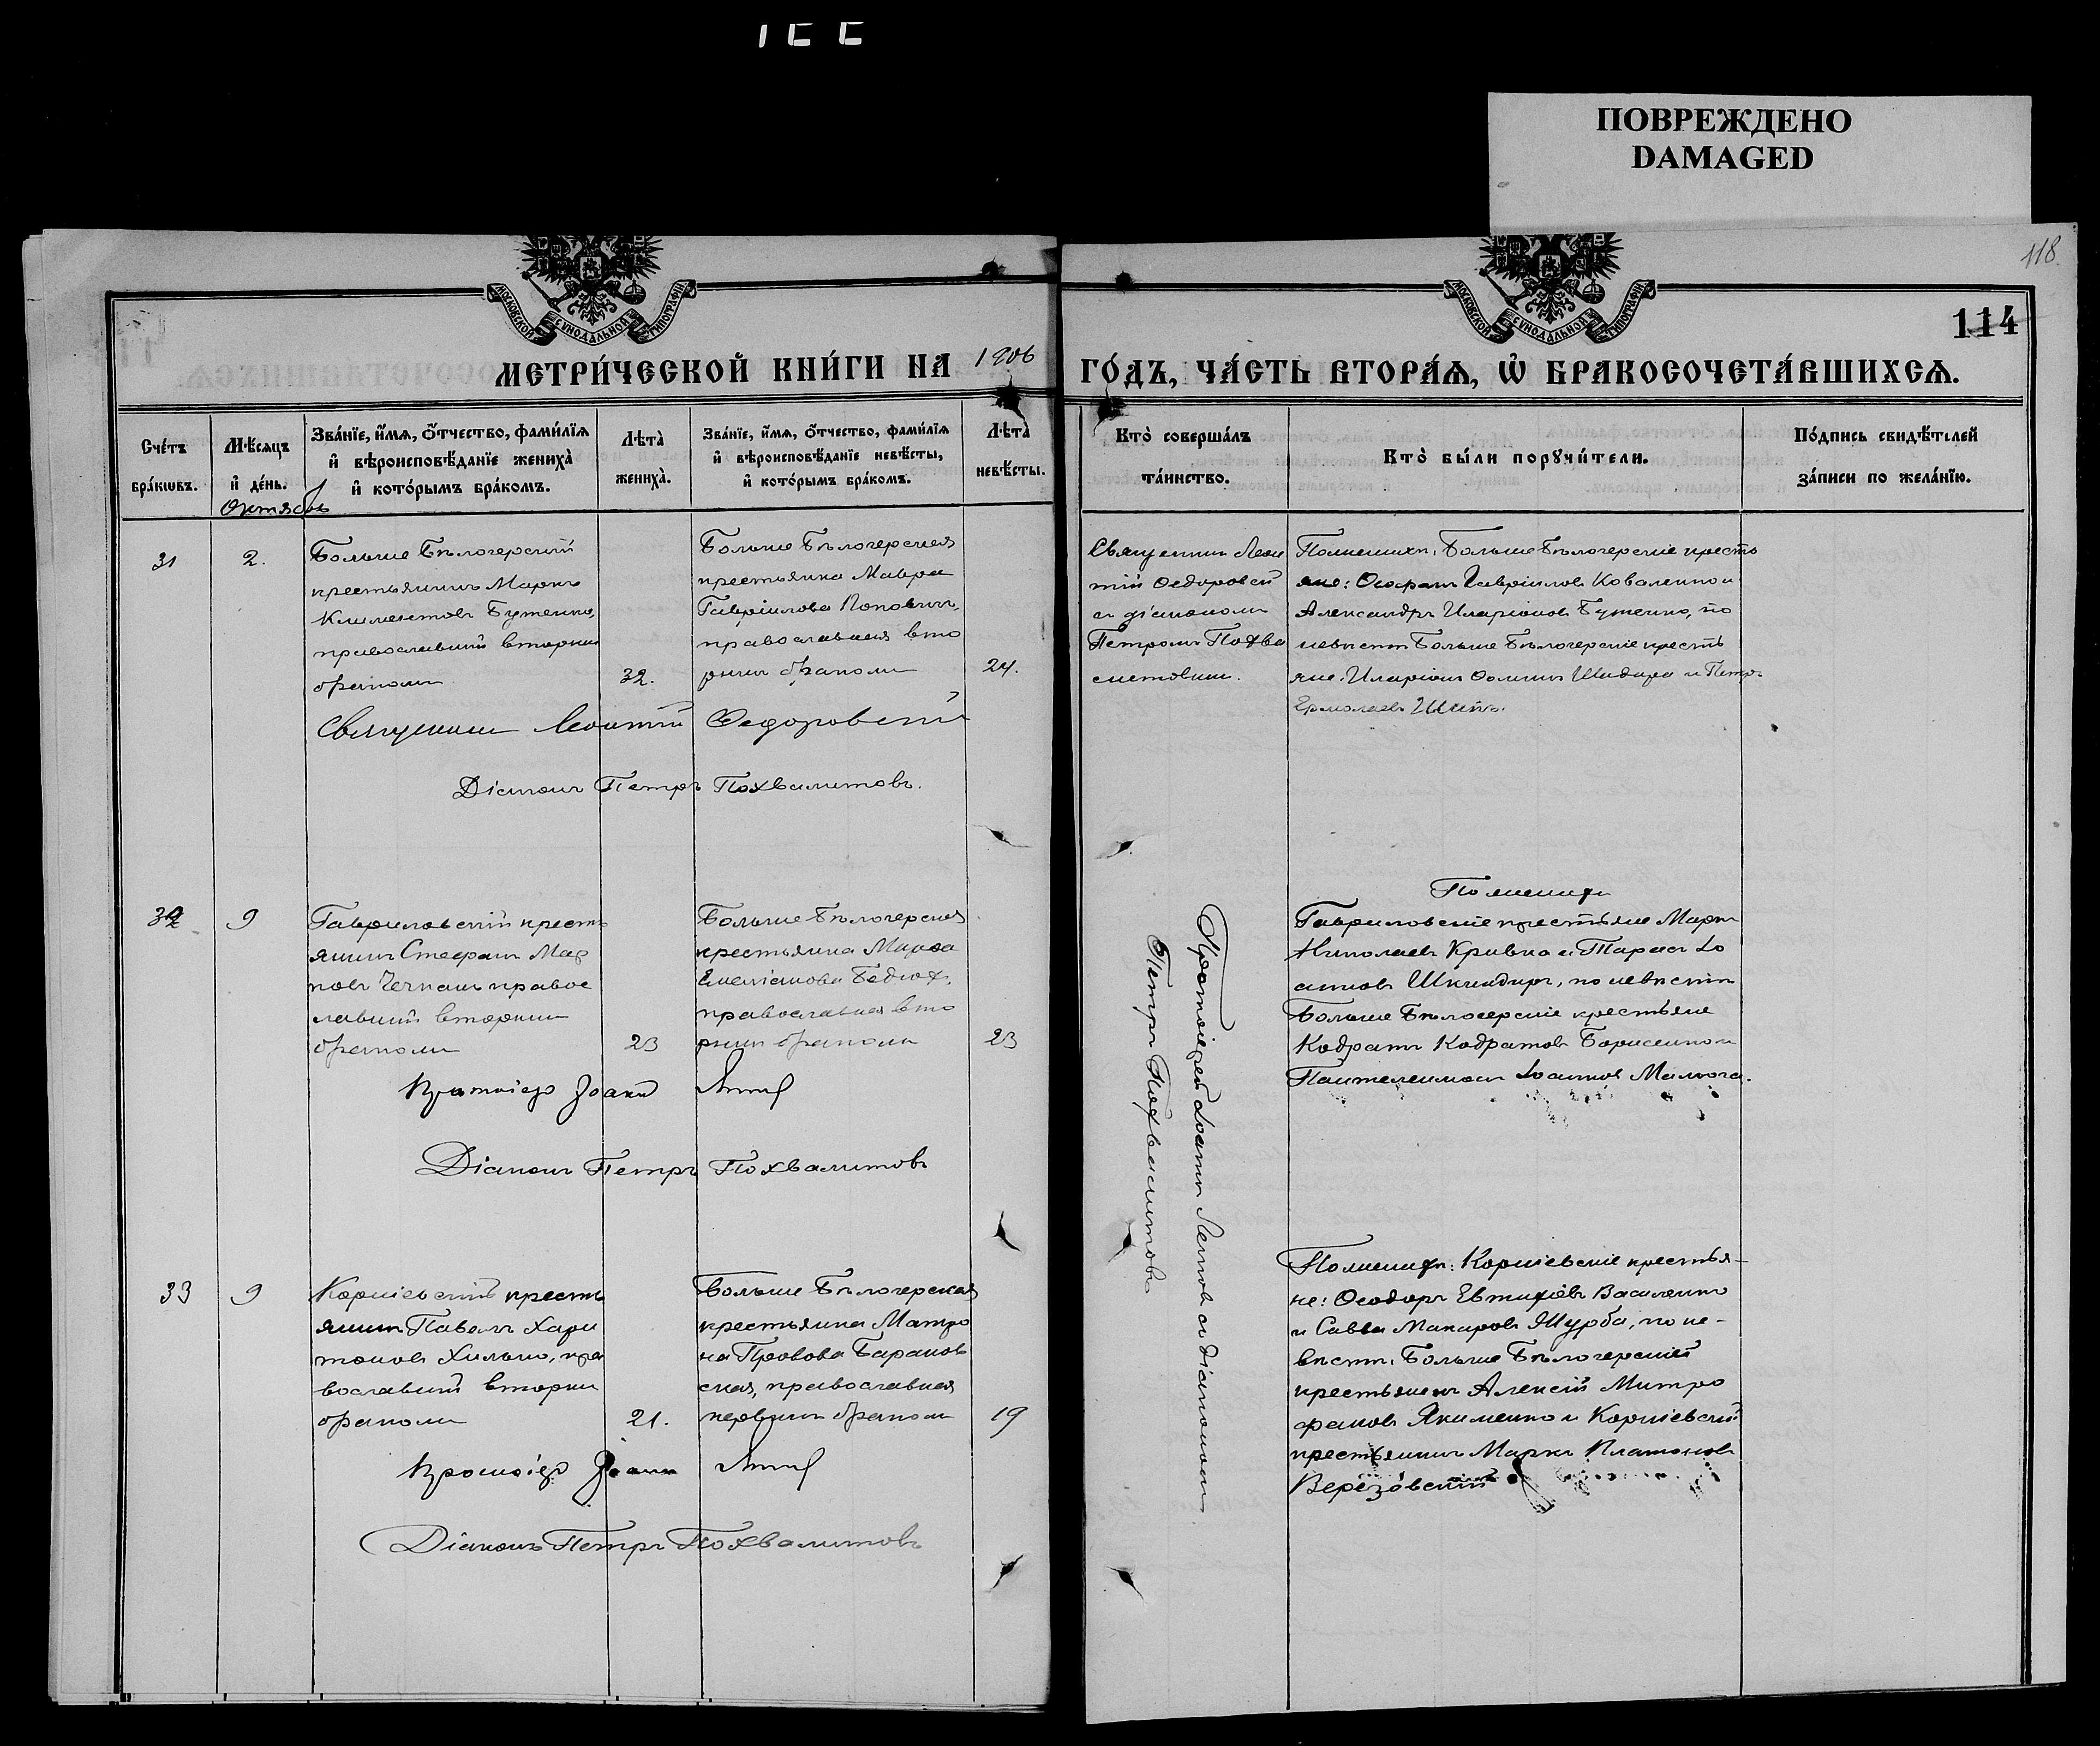 ПОВРЕЖДЕНО
DAMAGED
118.
114
МОСКОВСКОЙ СѴНОДАЛЬНОЙ ТИПОГРАФІИ
МОСКОВСКОЙ СѴНОДАЛЬНОЙ ТИПОГРАФІИ
МЕТРИ́ЧЕСКОЙ КНИ́ГИ НА 1906 ГО́ДЪ, ЧА́СТЬ ВТОРА́Ѧ, Ѡ҆ БРАКОСОЧЕТА́ВШИХСѦ.
Сче́тъ
бра́кѡвъ.
Мѣ́сяцъ
и҆ де́нь.
Зва́нїе, и҆́мѧ, ѻ҆́тчество, фами́лїѧ
и҆ вѣроисповѣ́данїе жениха̀
и҆ кото́рымъ бра́комъ.
Лѣта̀
жениха̀.
Зва́нїе, и҆́мѧ, ѻ҆́тчество, фами́лїѧ
и҆ вѣроисповѣ́данїе невѣ́сты,
и҆ кото́рымъ бра́комъ.
Лѣта̀
невѣ́сты.
Кто̀ соверша́лъ
та́инство.
Кто̀ бы́ли порꙋчи́тели.
По́дпись свидѣ́телей
за́писи по жела́нїю.
Октябрь
31
2.
Больше Бѣлозерскій
крестьянинъ Маркъ
Климентовъ Бутенко,
православный вторымъ
бракомъ
32.
Больше Бѣлозерская
крестьянка Мавра
Гавріилова Поповичъ,
православная вто
рымъ бракомъ
24.
Священникъ Леон
тій Ѳедоровскій
съ діакономъ
Петромъ Похва
литовымъ.
По женихѣ: Больше Бѣлозерскіе кресть
яне: Гавріиловъ Коваленко и
Александръ Иларіоновъ Бутенко, по
невѣстѣ Больше Бѣлозерскіе кресть
яне: Иларіонъ Ѳоминъ и Петръ
Ермолаевъ
Священникъ Леонтій Ѳедоровскій
Діаконъ Петръ Похвалитовъ.
32
9
Гавриловскій кресть
янинъ Стефанъ Мар
ковъ правос
лавный вторымъ
бракомъ
23
Больше Бѣлозерская
крестьянка Марѳа
Емеліанова
православная вто
рымъ бракомъ
23
Протоіерей Іоаннъ съ діакономъ
Петръ Похвалитовъ
По женихѣ
Гавриловскіе крестьяне Маркъ
Николаевъ Кривко и Тарасъ Іо
анновъ по невѣстѣ
Больше Бѣлозерскіе крестьяне
Кодратъ Кодратовъ Борисенко и
Пантелеимонъ Іоанновъ Малюга.
Протоіерей Іоаннъ
Діаконъ Петръ Похвалитовъ
33
9
Корніевскій кресть
янинъ Павелъ Хари
тоновъ Хилько, пра
вославный вторымъ
бракомъ
21.
Больше Бѣлозерская
крестьянка Матро
на Провова Баранов
ская, православная
первымъ бракомъ
19
По женихѣ: Корніевскіе крестья-
не: Ѳеодоръ Евтихіевъ Василенко
и Савва Макаровъ Журба, по не-
вѣстѣ: Больше Бѣлозерскій
крестьянинъ Алексій Митро
фановъ Якименко и Корніевскій
крестьянинъ Маркъ Платоновъ
Верезовскій
Протоіерей Іоаннъ
Діаконъ Петръ Похвалитовъ